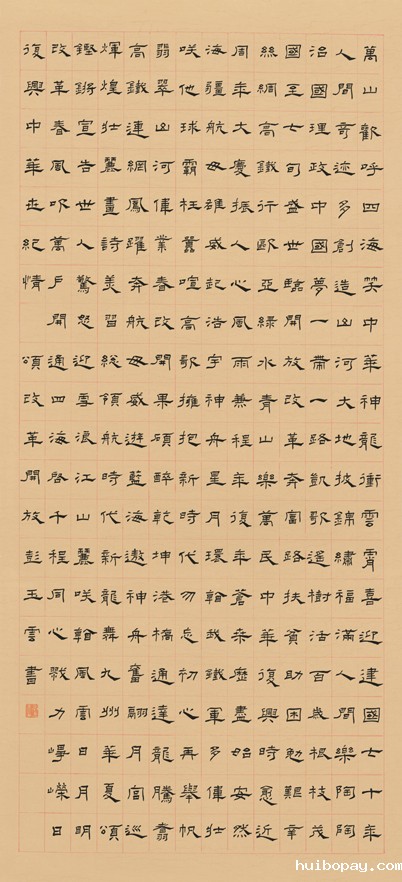 萬山歡呼四海笑中華神龍衝雲霄喜迎建國七十年
人間奇迹多創造山河大地披錦繡福滿人間樂陶陶
治國理政中國夢一帶一路凱歌遙樹活百歲根枝茂
國至七旬盛世臨開放改革奔富路扶貧助困勉艱辛
絲綢高鐵行歐亞綠水青山樂萬民中華復興時愈近
周年大慶振人心風雨兼程年復年蒼桑歷盡始安然
海疆航母雄威起浩宇神舟星月環翰我鐵軍多偉壯
咲他球霸枉囂喧高歌擁抱新時代勿忘初心再舉帆
翡翠山河偉業春改開果碩醉乾坤港橋通達龍騰翥
高鐵連網鳳躍奔航母威遊藍海遨神舟奮翮月宮巡
輝煌壯麗畫詩美習總領航時代新龍舞九州華夏頌
鏗鏘宣告世人驚怒迎雪浪江山麗咲翰風雲日月明
改革春風吹萬戶開通四海啓千程同心戮力崢嶸日
復興中華世紀情 頌改革開放彭玉雲書
huibopay.com